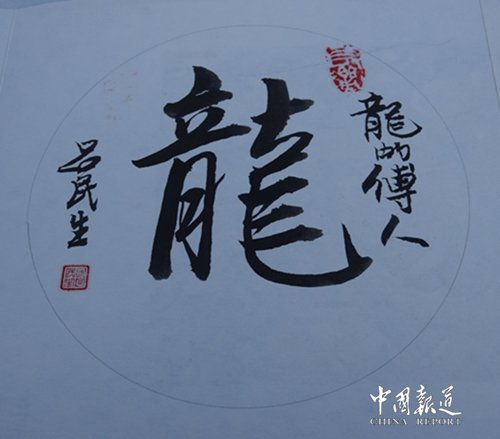 龍的傳人
龍
呂民生
中國報道
CHINA REPORT